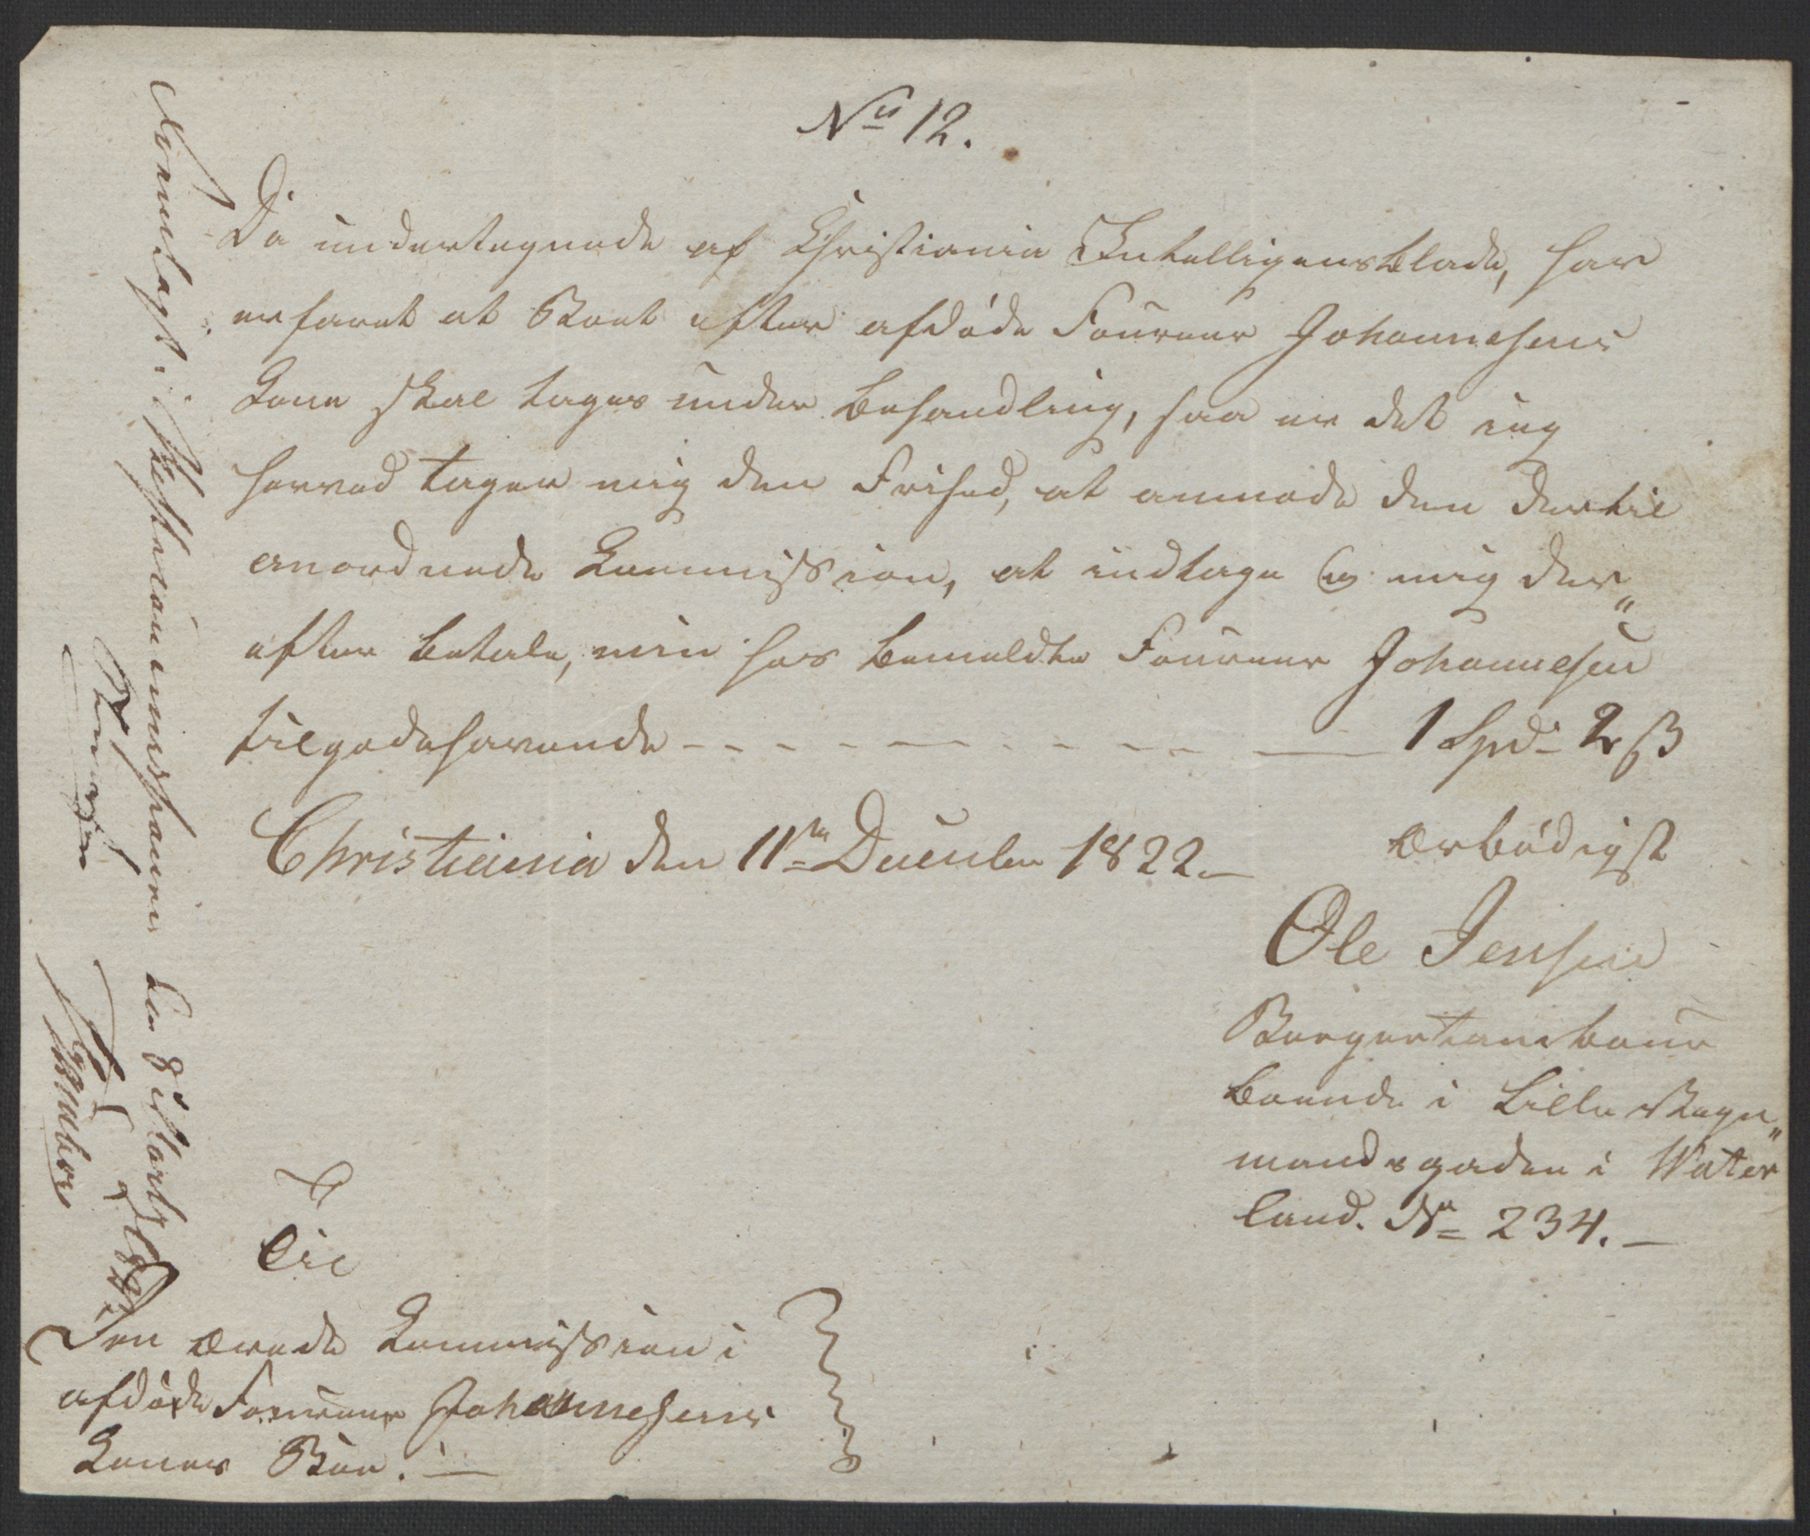 No 12.
Da undertegnede af Christiania Intelligensblade, har
erfaret at Boet efter afdøde Foureer Johannesens
Kone skal tages under Behandling, saa er det jeg
herved tager mig den Frihed, at anmode den dertil
anordnede Kommission, at indtage og mig der„
efter betale, min hos bemeldte Foureer Johannesen
tilgodehavende - - - - - - - - - 1 Spd. 2 ß
Christiania den 11te December 1822.
Ærbødigst
Ole Jensen
Borgertambour
boende i Lille Vogn„
mandsgaden i Water
land. No 234.
Til
Den ærede Kommission i
afdøde Foureer Johannesens
Kones Boe.
Fremlagt i den 8 Marts